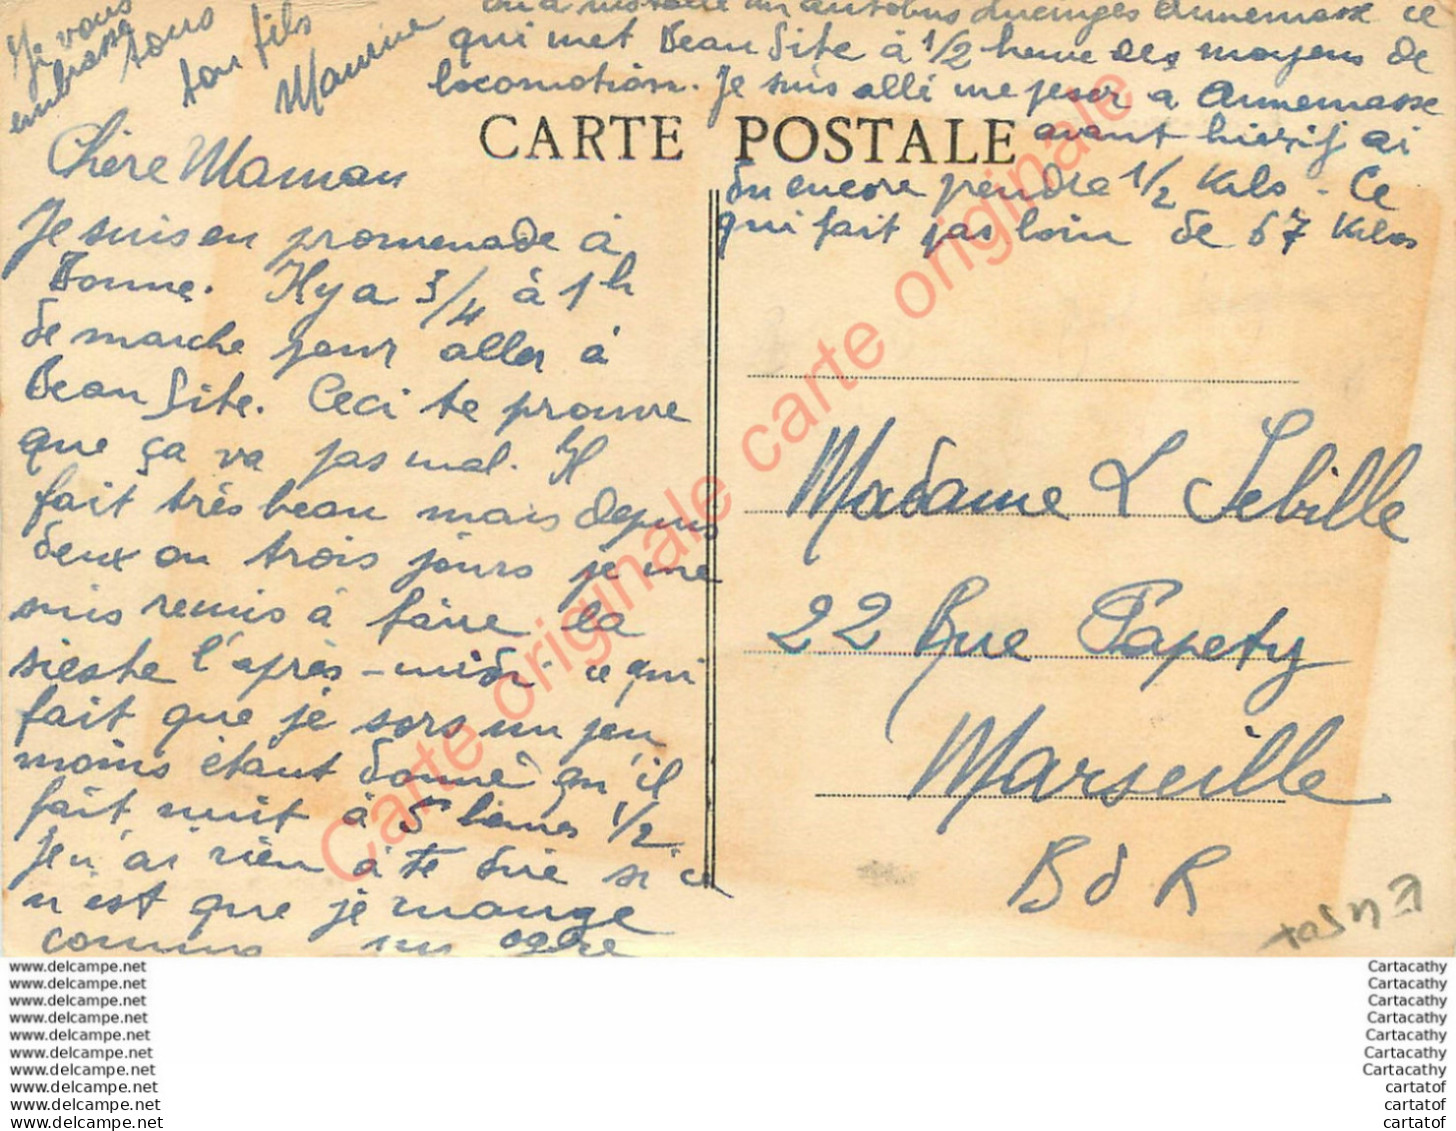 Chère Maman
Je suis en promenade à
Bonne. Il y a 3/4 à 1h
de marche pour aller à
Beau Site. Ceci te prouve
que ça va pas mal. Il
fait très beau mais depuis
deux ou trois jours je me
suis remis à faire la
sieste l'après-midi ce qui
fait que je sors un peu
moins étant donné qu'il
fait nuit à 5 heures 1/2
Je n'ai rien à te dire si ce
n'est que je mange
comme un ogre
on a installé un autobus Annemasse ce
qui met Beau Site à 1/2 heure des moyens de
locomotion. Je suis allé me peser à Annemasse
avant hier j'ai
du encore prendre 1/2 Kilo - Ce
qui fait pas loin de 67 Kilos
Je vous
embrasse tous
ton fils
Maurice
CARTE POSTALE
Madame L Sebille
22 Rue Papety
Marseille
B d R
Carte originale carte originale
www.delcampe.net
www.delcampe.net
www.delcampe.net
www.delcampe.net
www.delcampe.net
www.delcampe.net
www.delcampe.net
www.delcampe.net
www.delcampe.net
www.delcampe.net
Cartacathy
Cartacathy
Cartacathy
Cartacathy
Cartacathy
Cartacathy
Cartacathy
cartatof
cartatof
cartatof